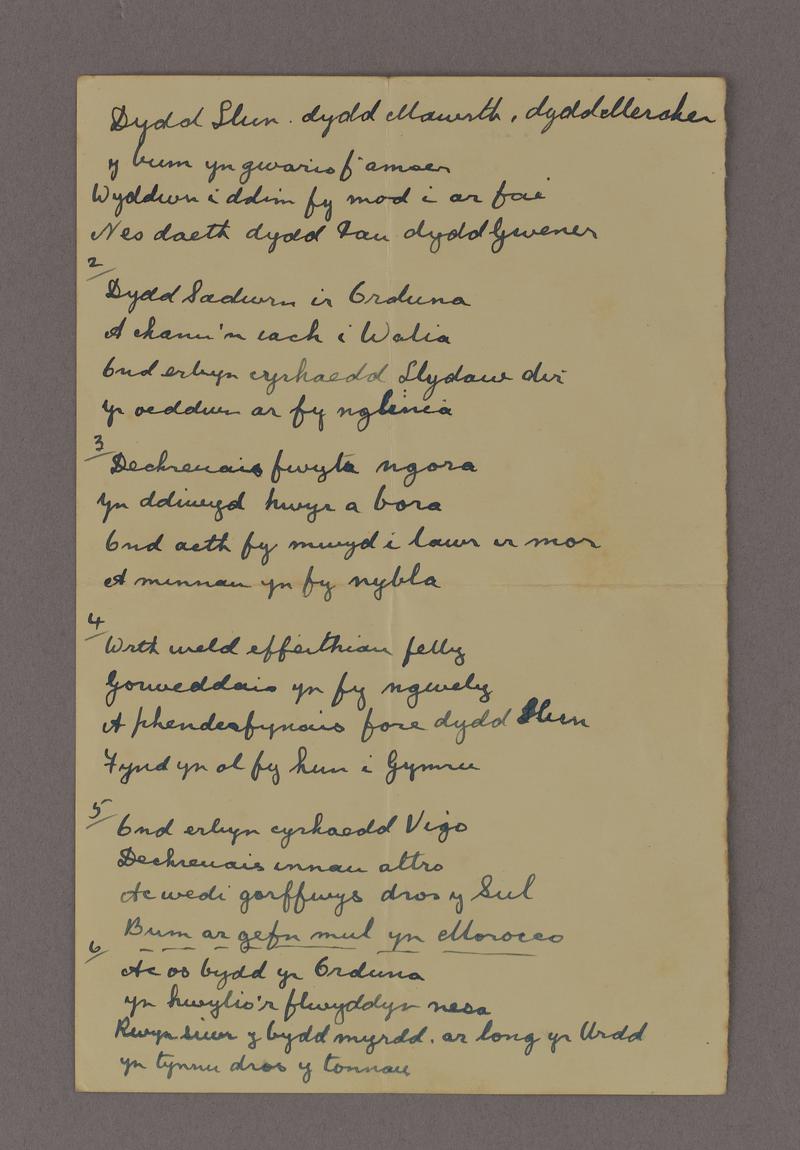 Dydd Llun. dydd Mawrth, dydd Mercher
y bum yn gwario f'amser
Wyddwn i ddim fy mod i ar fai
Nes daeth dydd Iau dydd Gwener
2
Dydd Sadwrn i'r Orduna
A chanu'n iach i Walia
Ond erbyn cyrhaedd Llydaw dir
Yr oeddwn ar fy nglinia
3
Dechreuais fwyta ngora
Yn ddiwyd hwyr a bora
Ond aeth fy mwyd i lawr i'r mor
A minnau yn fy nybla
4
Wrth weld effeithiau felly
Gorweddais yn fy ngwely
A phenderfynais fore dydd Llun
Fynd yn ol fy hun i Gymru
5
Ond erbyn cyrhaedd Vigo
Dechreuais innau altro
Ac wedi gorffwys dros y Sul
Bum ar gefn mul yn Morocco
6
Ac os bydd yr Orduna
yn hwylio'r flwyddyn nesa
Rwyn siwr y bydd myrdd. ar long yr Urdd
yn tynnu dros y tonnau